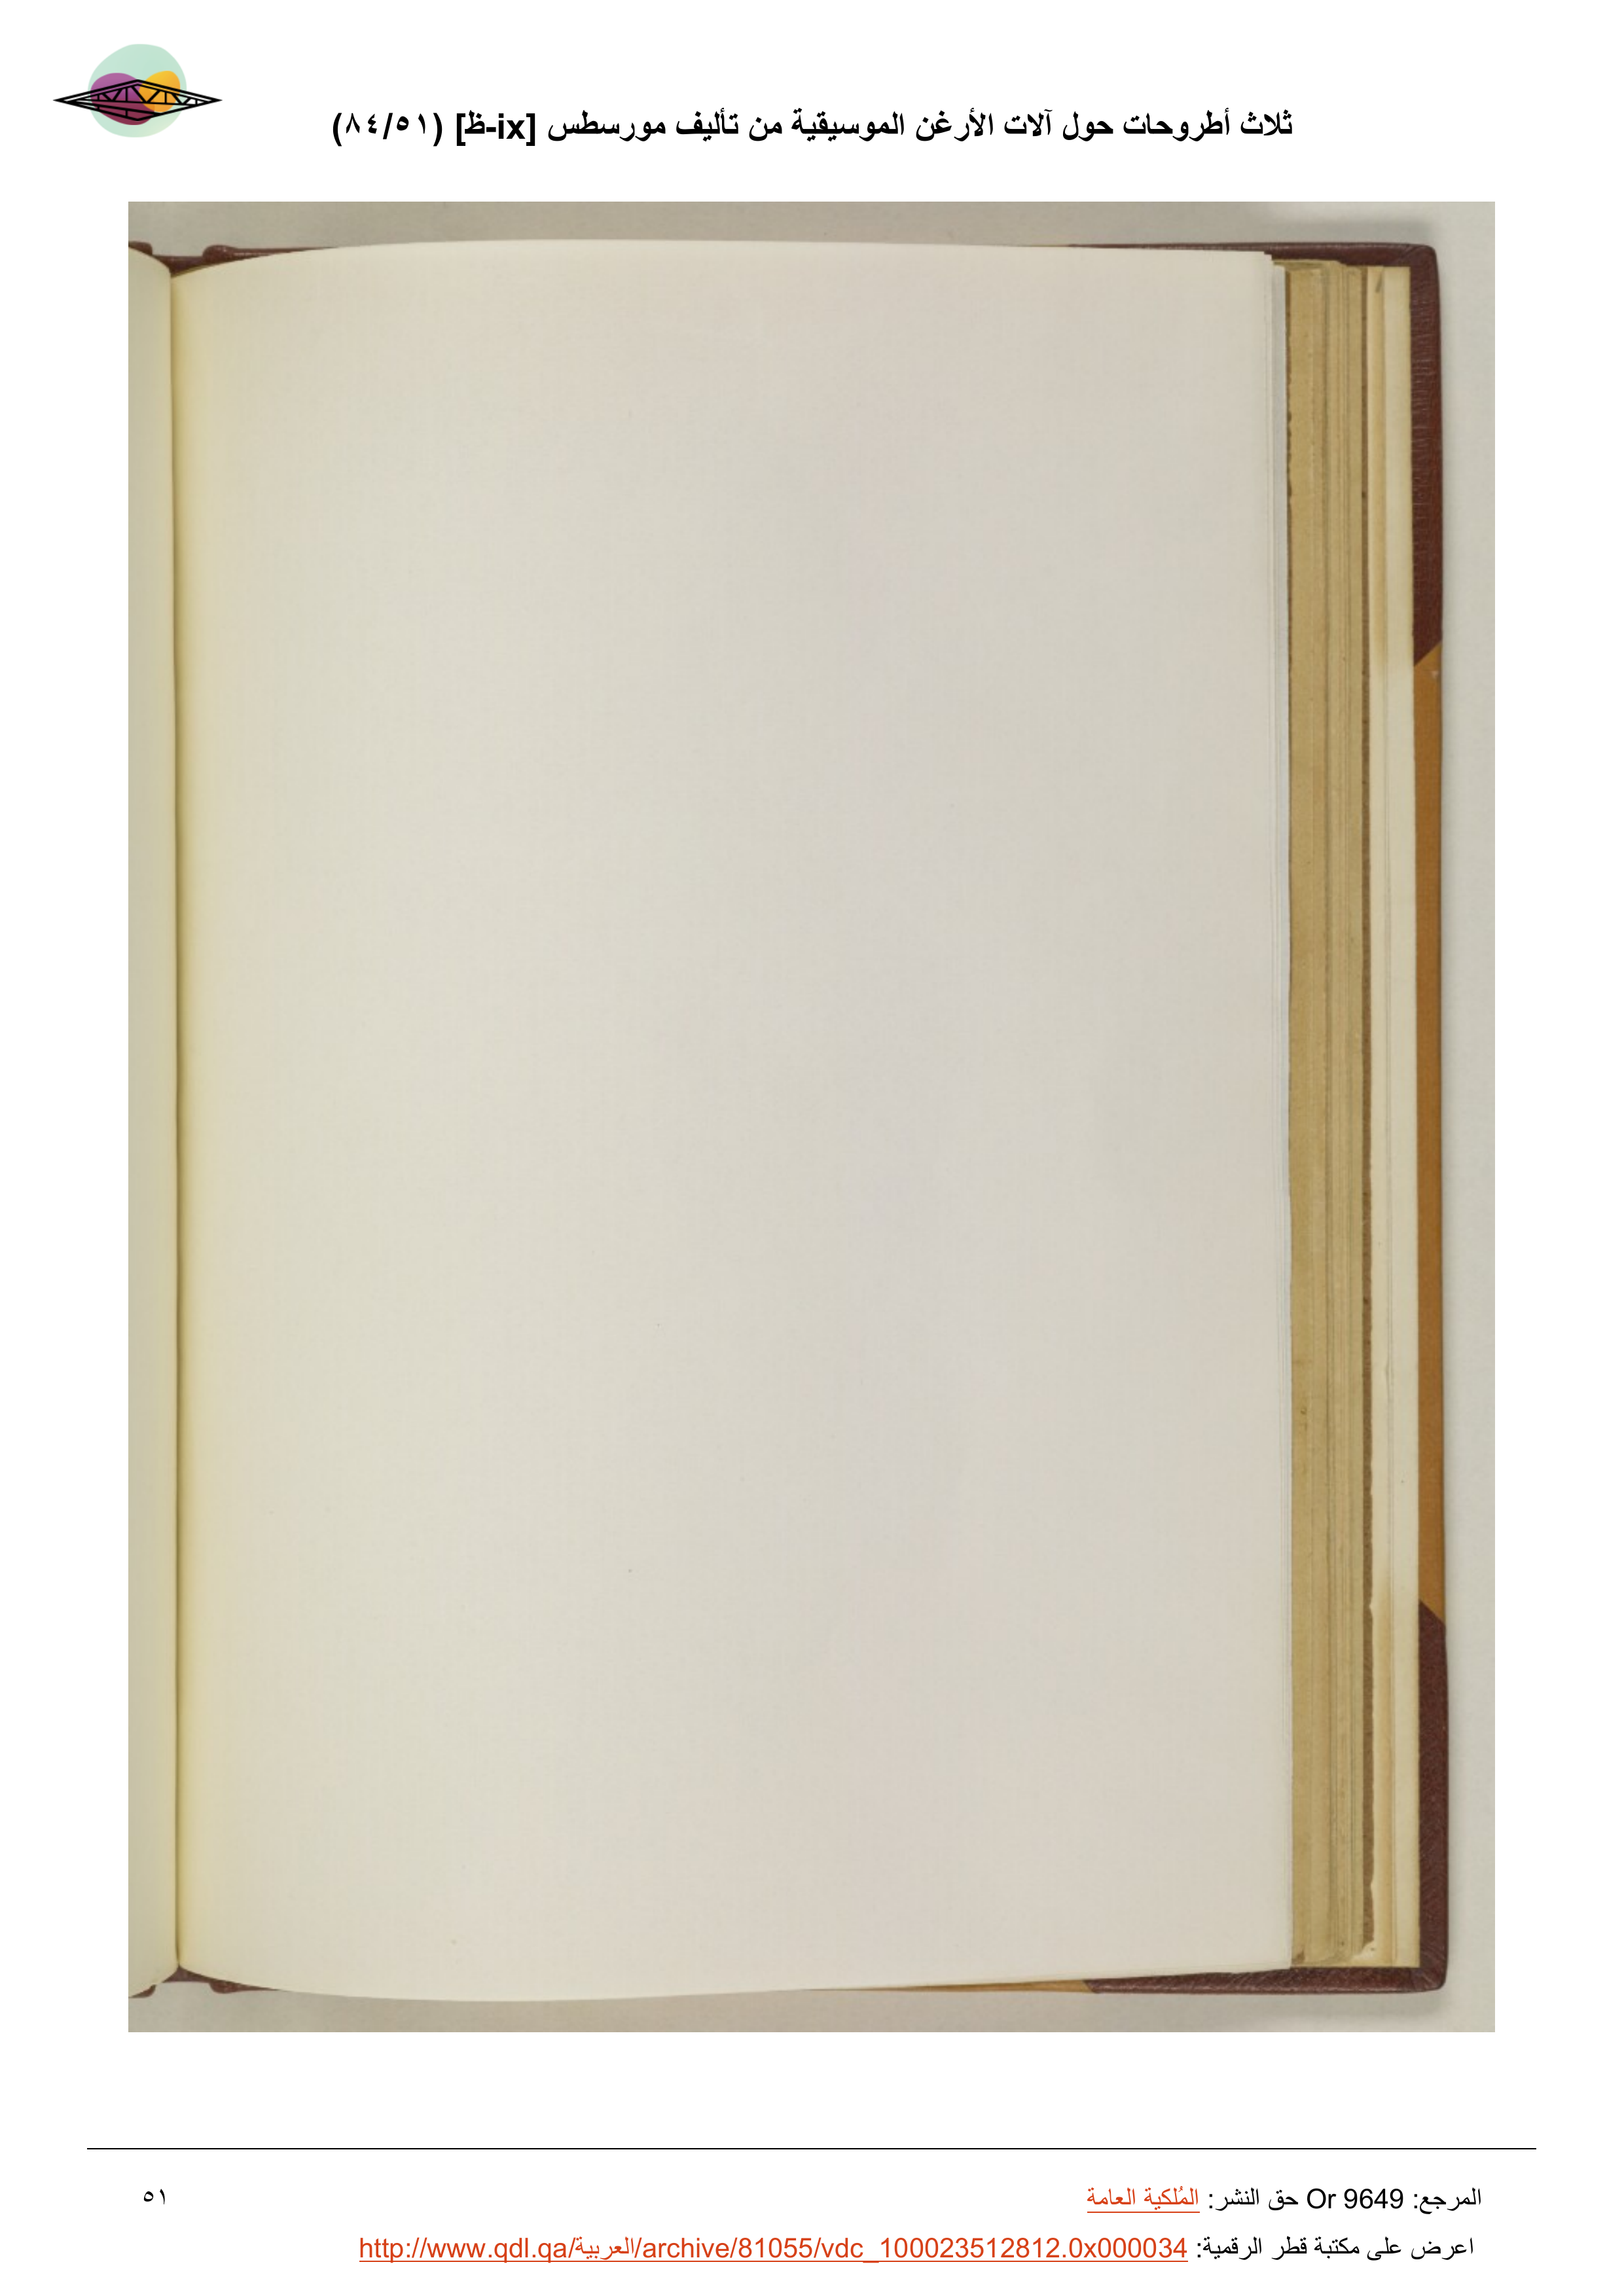 ثلاث أطروحات حول آلات الأرغن الموسيقية من تأليف مورسطس [ix-ظ] (٨٤/٥١)
المرجع: Or 9649 حق النشر: المُلكية العامة
٥١
اعرض على مكتبة قطر الرقمية: http://www.qdl.qa/العربية/archive/81055/vdc_100023512812.0x000034